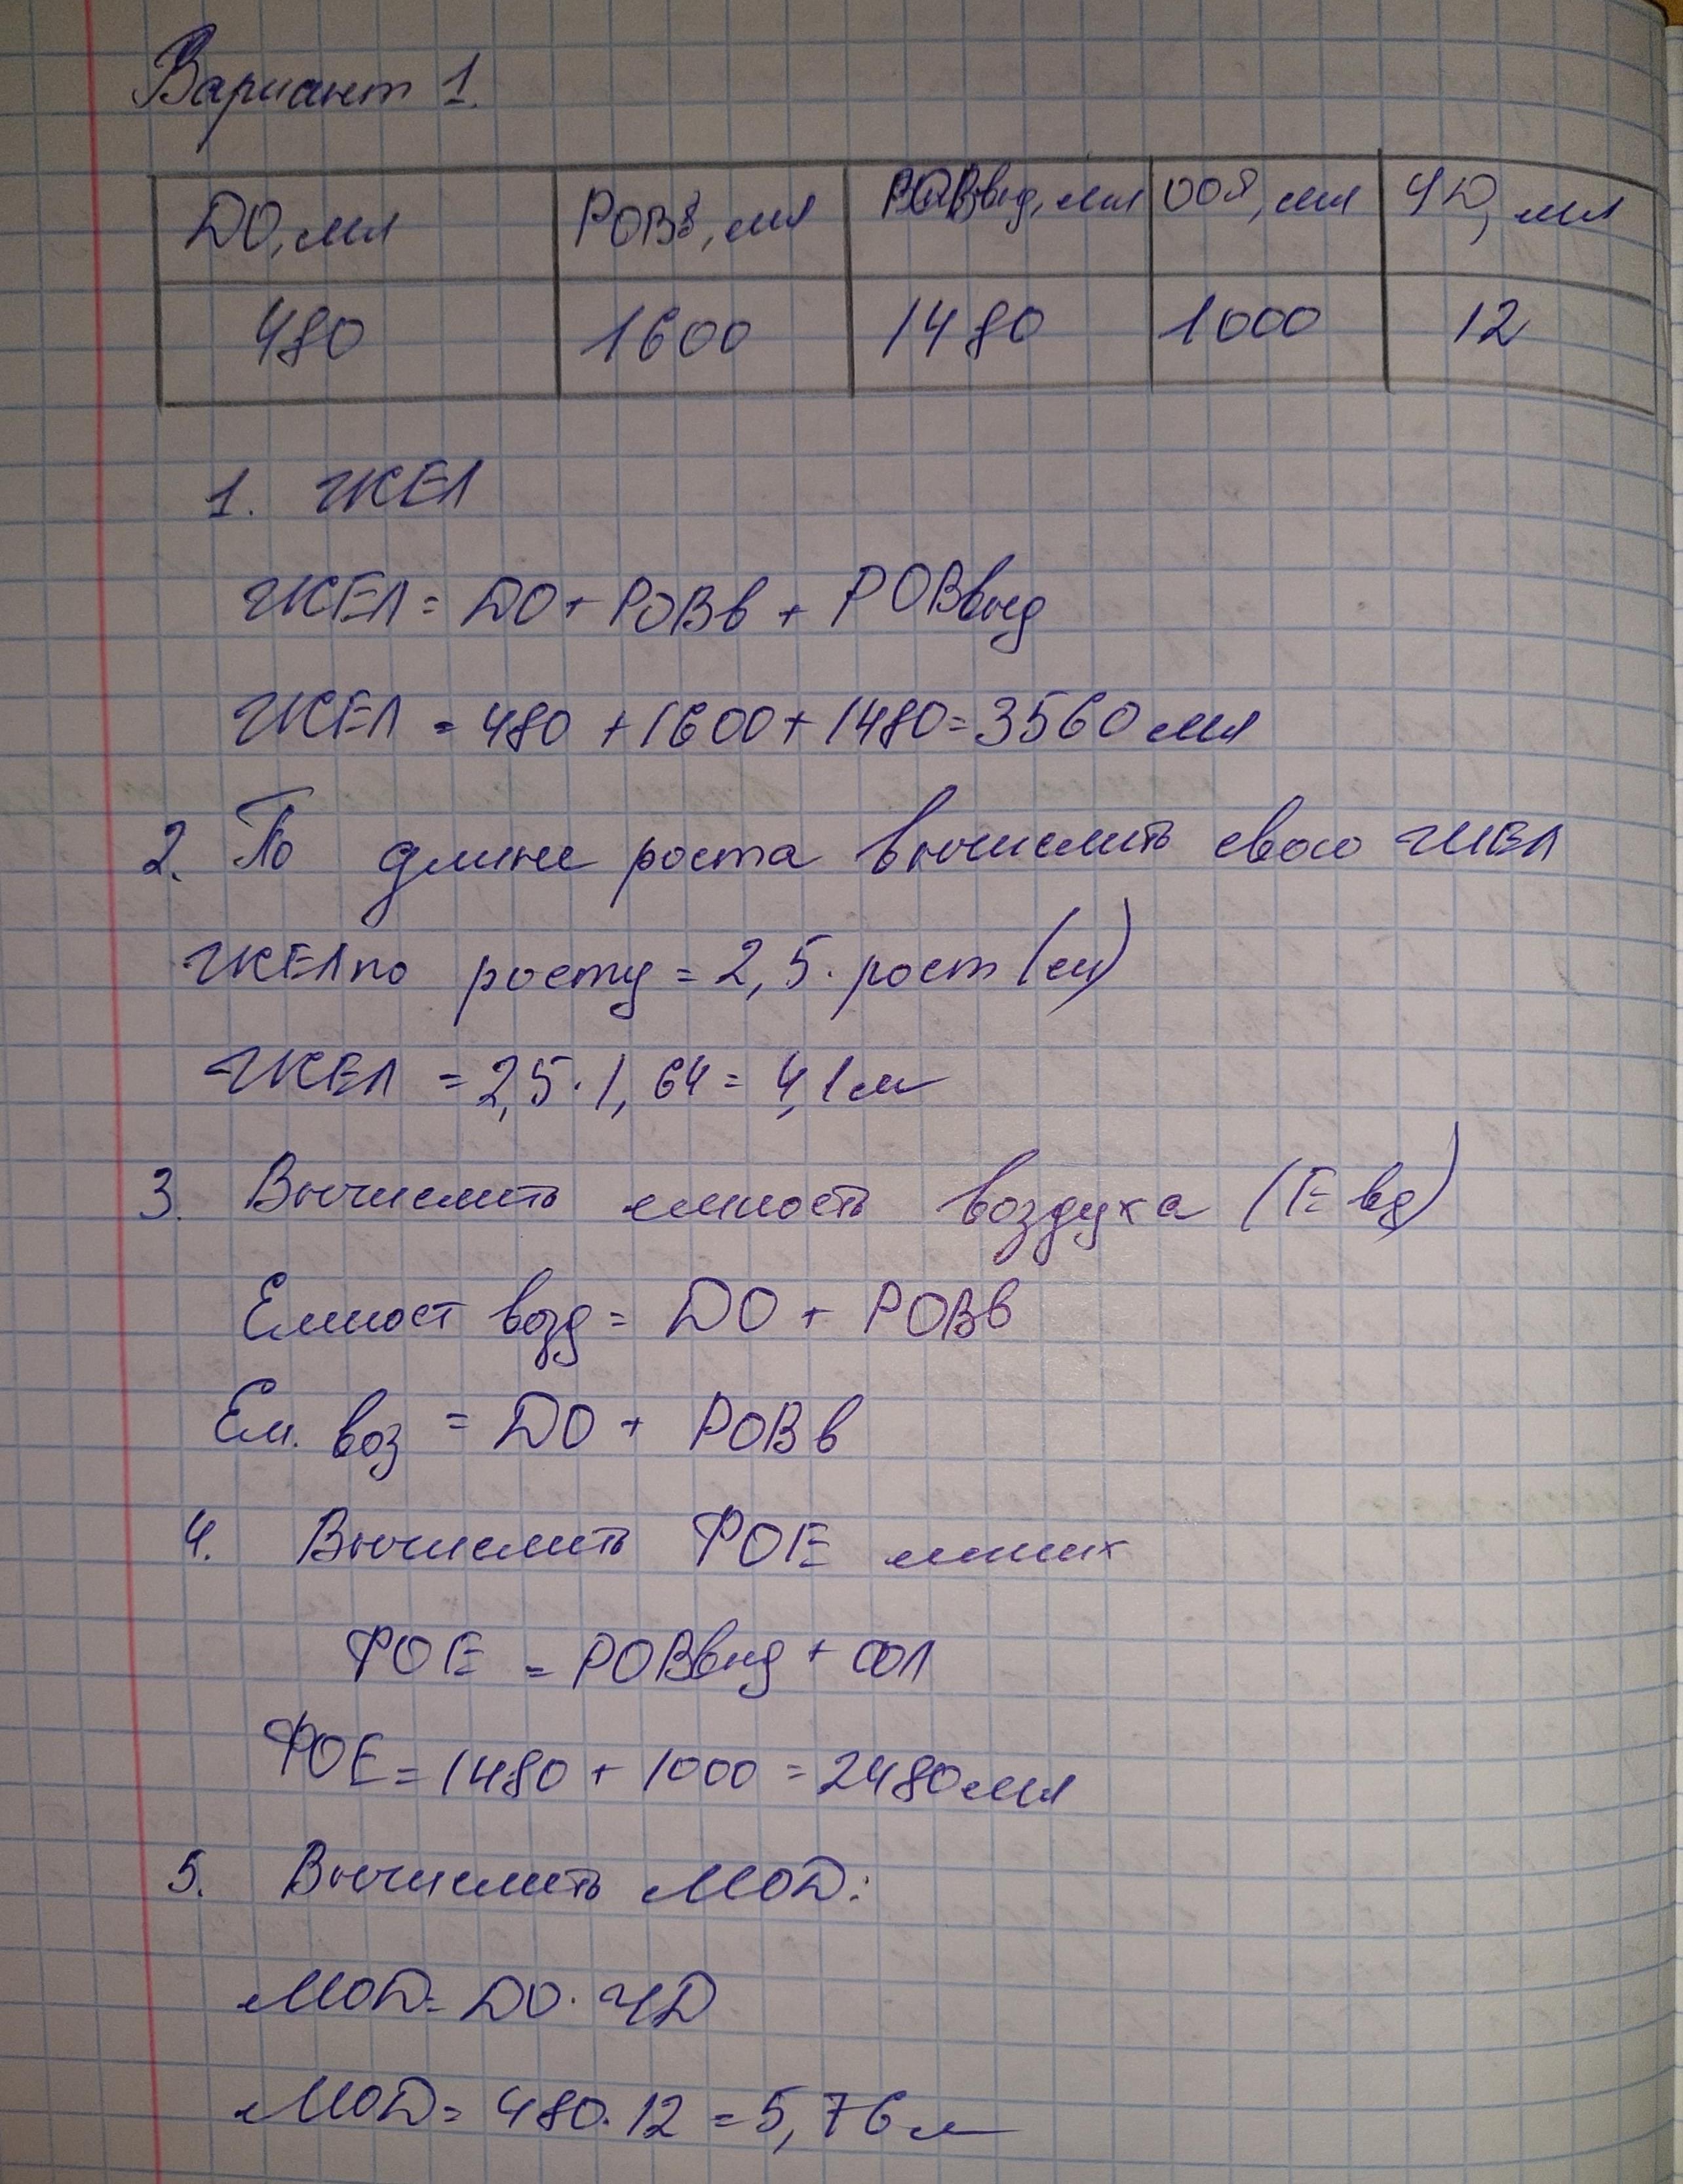 Вариант 1.
ДО, мл РОВв, мл РОВвыд, мл ООЛ, мл ЧД, мл
480 1600 1480 1000 12
1. ЖЕЛ
ЖЕЛ = ДО + РОВв + РОВвыд
ЖЕЛ = 480 + 1600 + 1480 = 3560 мл
2. По длине роста вычислить свою ЖЕЛ
ЖЕЛ по росту = 2,5 · рост (м)
ЖЕЛ = 2,5 · 1,64 = 4,1 м
3. Вычислить емкость воздуха (Е вд)
Емкост возд = ДО + РОВв
Ем. воз = ДО + РОВв
4. Вычислить ФОЕ легких
ФОЕ = РОВвыд + ООЛ
ФОЕ = 1480 + 1000 = 2480 мл
5. Вычислить МОД:
МОД = ДО · ЧД
МОД = 480 · 12 = 5,76 л